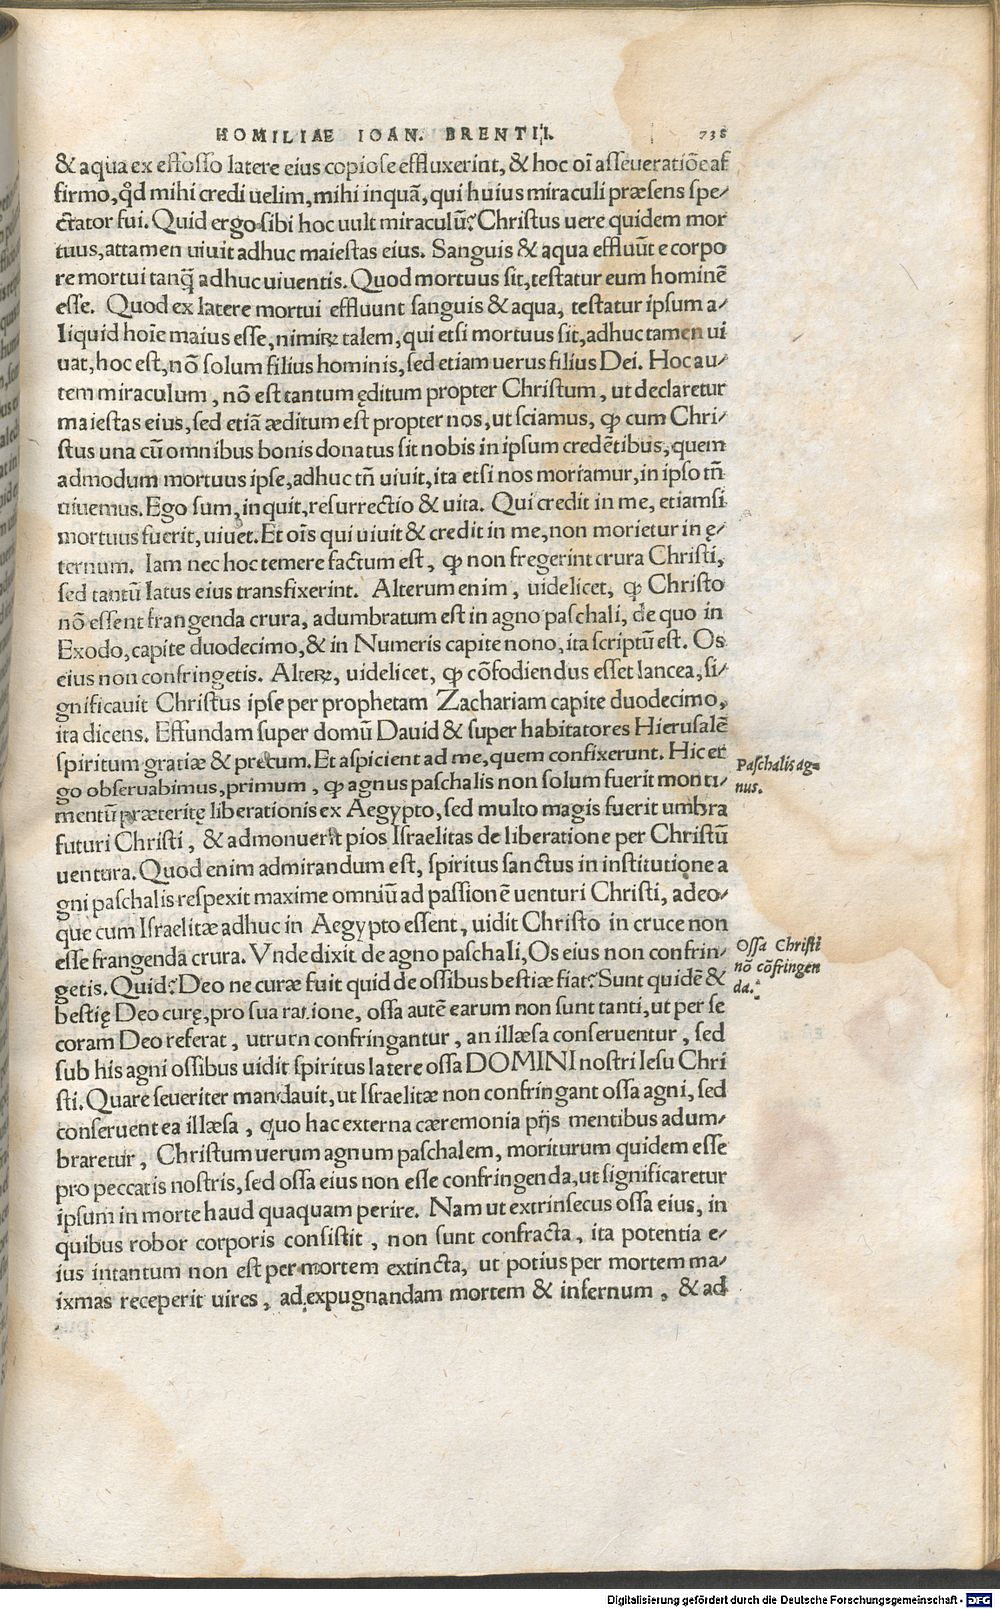 HOMILIAE IOAN. BRENTII. 738
& aqua ex effosso latere eius copiose effluxerint, & hoc oī asseueratiōe af
firmo, qđ mihi credi uelim, mihi inquā, qui huius miraculi præsens spe/
ctator fui. Quid ergo sibi hoc uult miraculū? Christus uere quidem mor
tuus, attamen uiuit adhuc maiestas eius. Sanguis & aqua effluūt e corpo
re mortui tanq̄ adhuc uiuentis. Quod mortuus sit, testatur eum hominē
esse. Quod ex latere mortui effluunt sanguis & aqua, testatur ipsum a/
liquid hoīe maius esse, nimiꝝ talem, qui etsi mortuus sit, adhuc tamen ui
uat, hoc est, nō solum filius hominis, sed etiam uerus filius Dei. Hoc au/
tem miraculum, nō est tantum ęditum propter Christum, ut declaretur
maiestas eius, sed etiā æditum est propter nos, ut sciamus, ꝙ cum Chri/
stus una cū omnibus bonis donatus sit nobis in ipsum credētibus, quem
admodum mortuus ipse, adhuc tñ uiuit, ita etsi nos moriamur, in ipso tñ
uiuemus. Ego sum, inquit, resurrectio & uita. Qui credit in me, etiamsi
mortuus fuerit, uiuet. Et oīs qui uiuit & credit in me, non morietur in ę/
ternum. Iam nec hoc temere factum est, ꝙ non fregerint crura Christi,
sed tantū latus eius transfixerint. Alterum enim, uidelicet, ꝙ Christo
nō essent frangenda crura, adumbratum est in agno paschali, de quo in
Exodo, capite duodecimo, & in Numeris capite nono, ita scriptū est. Os
eius non confringetis. Alteꝝ, uidelicet, ꝙ cōfodiendus esset lancea, si/
gnificauit Christus ipse per prophetam Zachariam capite duodecimo,
ita dicens. Effundam super domū Dauid & super habitatores Hierusalē
spiritum gratiæ & precum. Et aspicient ad me, quem confixerunt. Hic er
go obseruabimus, primum, ꝙ agnus paschalis non solum fuerit monu/
mentū præteritę liberationis ex Aegypto, sed multo magis fuerit umbra
futuri Christi, & admonuerit pios Israelitas de liberatione per Christū
uentura. Quod enim admirandum est, spiritus sanctus in institutione a
gni paschalis respexit maxime omniū ad passionē uenturi Christi, adeo/
que cum Israelitæ adhuc in Aegypto essent, uidit Christo in cruce non
esse frangenda crura. Vnde dixit de agno paschali, Os eius non confrin/
getis. Quid? Deo ne curæ fuit quid de ossibus bestiæ fiat? Sunt quidē &
bestię Deo curę, pro sua ratione, ossa autē earum non sunt tanti, ut per se
coram Deo referat, utrum confringantur, an illæsa conseruentur, sed
sub his agni ossibus uidit spiritus latere ossa DOMINI nostri Iesu Chri
sti. Quare seueriter mandauit, ut Israelitæ non confringant ossa agni, sed
conseruent ea illæsa, quo hac externa cæremonia pijs mentibus adum/
braretur, Christum uerum agnum paschalem, moriturum quidem esse
pro peccatis nostris, sed ossa eius non esse confringenda, ut significaretur
ipsum in morte haud quaquam perire. Nam ut extrinsecus ossa eius, in
quibus robor corporis consistit, non sunt confracta, ita potentia e/
ius intantum non est per mortem extincta, ut potius per mortem ma/
ixmas receperit uires, ad expugnandam mortem & infernum, & ad
Paschalis ag=
nus.
Ossa Christi
nō cōfringen
da.
Digitalisierung gefördert durch die Deutsche Forschungsgemeinschaft - DFG